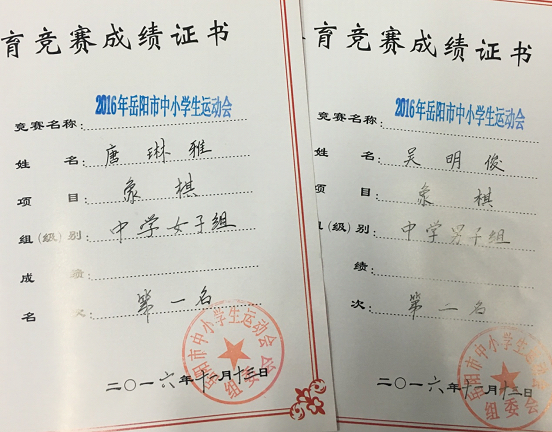 育竞赛成绩证书
竞赛名称：2016年岳阳市中小学生运动会
姓名：唐琳雅
项目：象棋
组（级）别：中学女子组
成绩：
名次：第一名
岳阳市中小学生运动会
组委会
二〇一六年十一月十三日
育竞赛成绩证书
竞赛名称：2016年岳阳市中小学生运动会
姓名：吴明俊
项目：象棋
（级）别：中学男子组
绩：
次：第二名
市中小学生运动会
组委会
二〇一六年十一月十三日